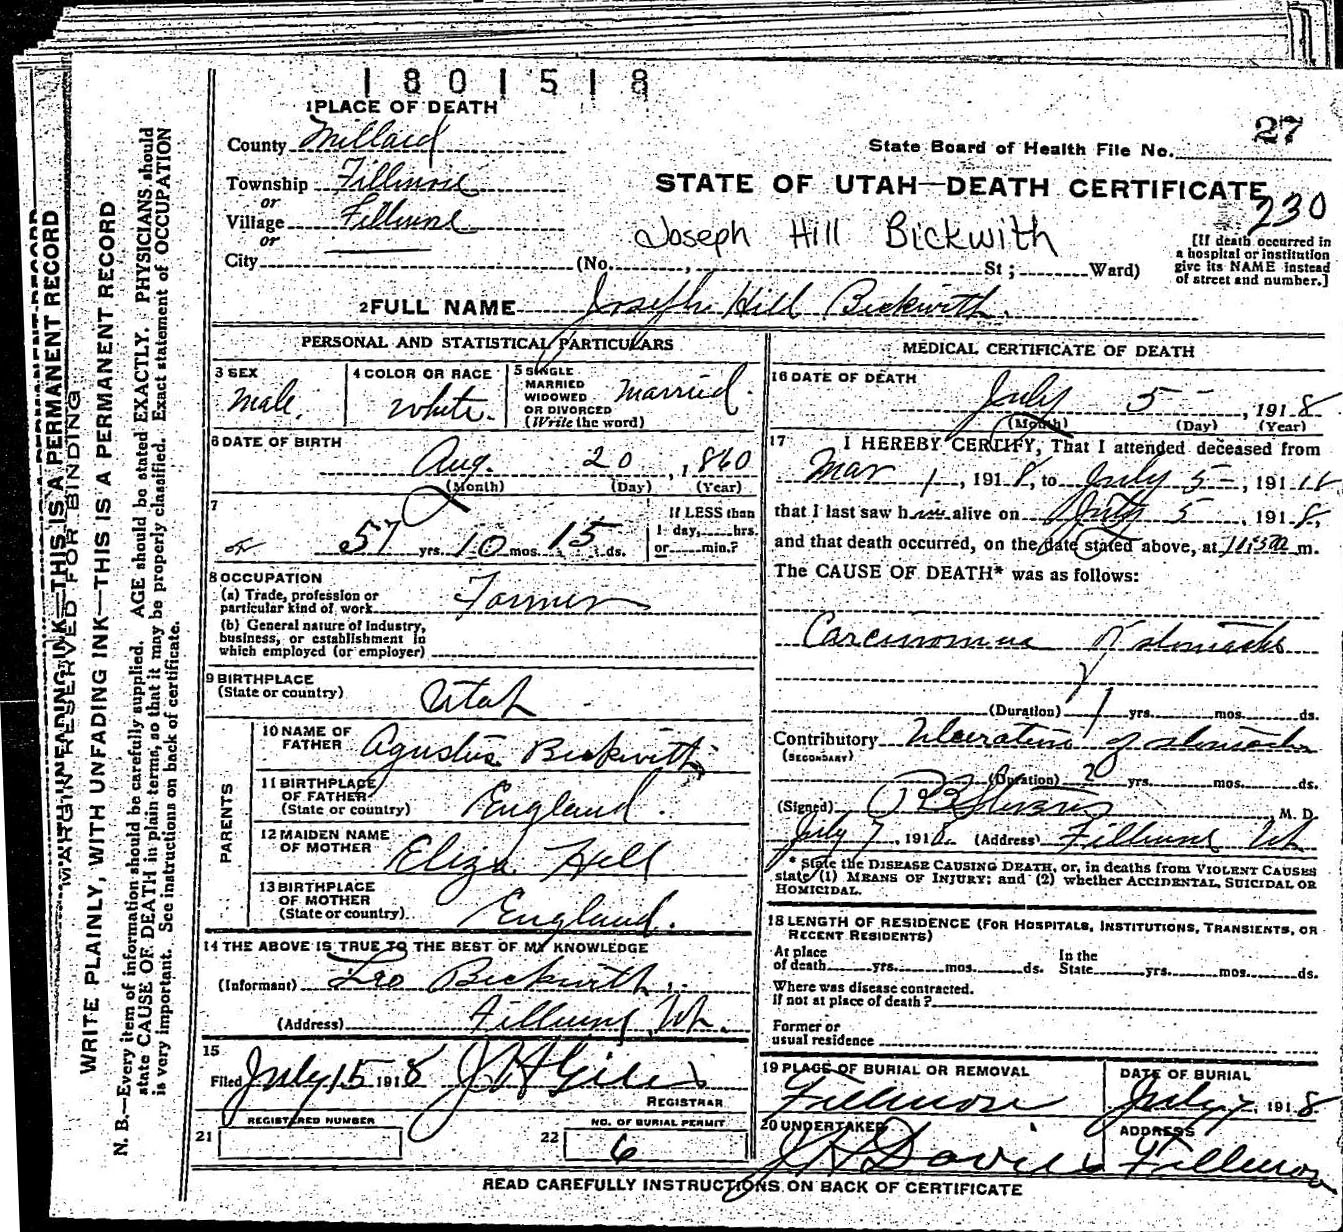 1801518
1 PLACE OF DEATH
27
County Millard
State Board of Health File No.
Township Fillmore
STATE OF UTAH—DEATH CERTIFICATE
or
230
Village Fillmore
Joseph Hill Bickwith
or
[If death occurred in
a hospital or institution
give its NAME instead
of street and number.]
City (No. , St ; Ward)
2 FULL NAME Joseph Hill Bickwith
PERSONAL AND STATISTICAL PARTICULARS
3 SEX
Male.
4 COLOR OR RACE
White.
5 SINGLE
MARRIED
WIDOWED
OR DIVORCED
(Write the word)
Married.
6 DATE OF BIRTH
Aug. 20, 1860
(Month) (Day) (Year)
7
57 yrs. 10 mos. 15 ds.
If LESS than
1 day, hrs.
or min.?
8 OCCUPATION
(a) Trade, profession or
particular kind of work Farmer
(b) General nature of Industry,
business, or establishment in
which employed (or employer)
9 BIRTHPLACE
(State or country)
Utah
PARENTS
10 NAME OF
FATHER Agustus Bickwith
11 BIRTHPLACE
OF FATHER
(State or country) England.
12 MAIDEN NAME
OF MOTHER Eliza Hill
13 BIRTHPLACE
OF MOTHER
(State or country) England.
14 THE ABOVE IS TRUE TO THE BEST OF MY KNOWLEDGE
(Informant) Leo Bickwith
(Address) Fillmore, Ut.
15
Filed July 15 1918
REGISTRAR
REGISTERED NUMBER
21
NO. OF BURIAL PERMIT
22 6
MEDICAL CERTIFICATE OF DEATH
16 DATE OF DEATH
July 5, 1918
(Month) (Day) (Year)
17 I HEREBY CERTIFY, That I attended deceased from
Mar 1, 1918, to July 5, 191
that I last saw him alive on July 5, 1918,
and that death occurred, on the date stated above, at m.
The CAUSE OF DEATH* was as follows:
Carcinoma of stomach
(Duration) 1 yrs. mos. ds.
Contributory Ulceration of stomach
(SECONDARY)
(Duration) 20 yrs. mos. ds.
(Signed) M. D.
July 7, 1918. (Address) Fillmore Ut
* State the DISEASE CAUSING DEATH, or, in deaths from VIOLENT CAUSES
state (1) MEANS OF INJURY; and (2) whether ACCIDENTAL, SUICIDAL OR
HOMICIDAL.
18 LENGTH OF RESIDENCE (FOR HOSPITALS, INSTITUTIONS, TRANSIENTS, OR
RECENT RESIDENTS)
At place
of death yrs. mos. ds.
In the
State yrs. mos. ds.
Where was disease contracted.
If not at place of death?
Former or
usual residence
19 PLACE OF BURIAL OR REMOVAL
Fillmore
DATE OF BURIAL
July 7, 1918
20 UNDERTAKER
Davies
ADDRESS
Fillmore
READ CAREFULLY INSTRUCTIONS ON BACK OF CERTIFICATE
MARGIN RESERVED FOR BINDING
WRITE PLAINLY, WITH UNFADING INK—THIS IS A PERMANENT RECORD
N. B.—Every item of information should be carefully supplied. AGE should be stated EXACTLY. PHYSICIANS should
state CAUSE OF DEATH in plain terms, so that it may be properly classified. Exact statement of OCCUPATION
is very important. See instructions on back of certificate.